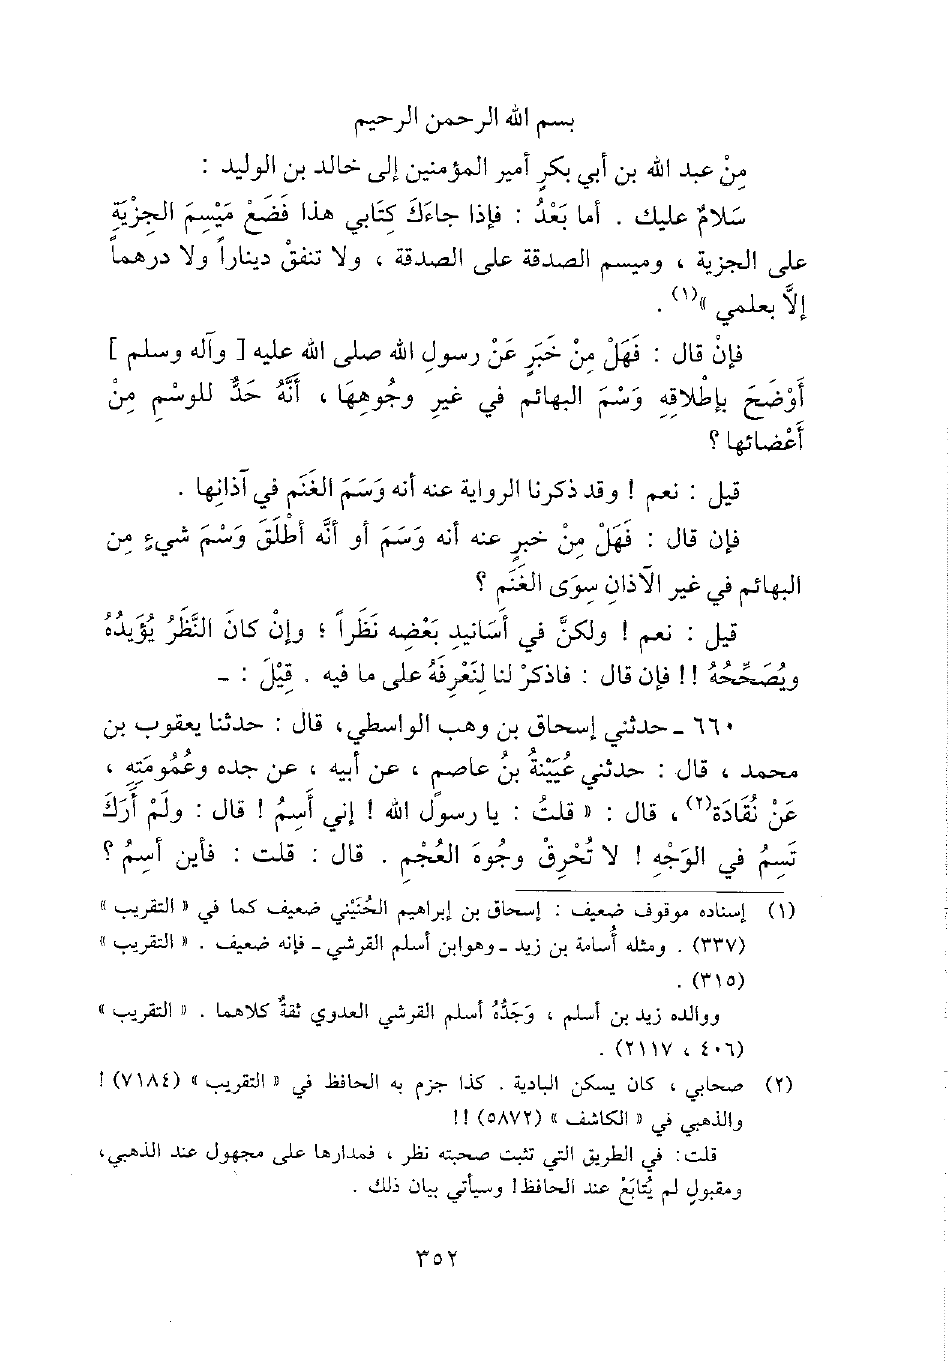 بسم الله الرحمن الرحيم
مِنْ عبد الله بن أبي بكرٍ أمير المؤمنين إلى خالد بن الوليد :
سَلامٌ عليك . أما بَعْدُ : فإذا جاءَكَ كِتَابي هذا فَضَعْ مَيْسِمَ الجِزْيَةِ
على الجزية ، وميسم الصدقة على الصدقة ، ولا تنفقْ ديناراً ولا درهماً
إلاَّ بعلمي »(١) .
فإنْ قال : فَهَلْ مِنْ خَبَرٍ عَنْ رسولِ الله صلى الله عليه [ وآله وسلم ]
أَوْضَحَ بإطْلاقِهِ وَسْمَ البهائم في غيرِ وجُوهِهَا ، أَنَّهُ حَدٌّ للوسْمِ مِنْ
أَعْضائها ؟
قيل : نعم ! وقد ذكرنا الرواية عنه أنه وَسَمَ الغَنَم في آذانِها .
فإن قال : فَهَلْ مِنْ خبرٍ عنه أنه وَسَمَ أو أنَّه أطْلَقَ وَسْمَ شيءٍ مِن
البهائم في غير الآذانِ سِوَى الغَنَم ؟
قيل : نعم ! ولكنَّ في أَسَانيدِ بَعْضِه نَظَراً ؛ وإنْ كانَ النَّظَرُ يُؤَيدُهُ
ويُصَحِّحُهُ !! فإن قال : فاذكرْ لنا لِنَعْرِفَهُ على ما فيه . قِيْلَ : ـ
٦٦٠ ـ حدثني إسحاق بن وهب الواسطي، قال : حدثنا يعقوب بن
محمد ، قال : حدثني عُيَيْنَةُ بنُ عاصمٍ ، عن أبيه ، عن جده وعُمُومَتِهِ ،
عَنْ نُقَادَة(٢)، قال : « قلتُ : يا رسولَ الله ! إني أَسِمُ ! قال : ولَمْ أَرَكَ
تَسِمُ في الوَجْهِ ! لا تُحْرِقْ وجُوهَ العُجْمِ . قال : قلت : فأين أسِمُ ؟
(١) إسناده موقوف ضعيف : إسحاق بن إبراهيم الحُنَيْني ضعيف كما في « التقريب »
(٣٣٧) . ومثله أُسامة بن زيد ـ وهوابن أسلم القرشي ـ فإنه ضعيف . « التقريب »
(٣١٥) .
ووالده زيد بن أسلم ، وَجَدُّهُ أسلم القرشي العدوي ثقةٌ كلاهما . « التقريب »
(٤٠٦ ، ٢١١٧) .
(٢) صحابي ، كان يسكن البادية . كذا جزم به الحافظ في « التقريب » (٧١٨٤) !
والذهبي في « الكاشف » (٥٨٧٢) !!
قلت: في الطريق التي تثبت صحبته نظر ، فمدارها على مجهول عند الذهبي،
ومقبولٍ لم يُتَابَعْ عند الحافظ! وسيأتي بيان ذلك .
٣٥٢